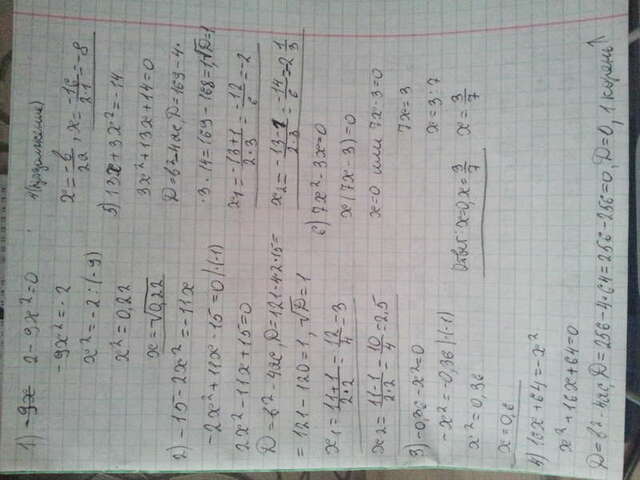 1) -9x 2 - 9x² = 0
-9x² = -2
x² = -2 : (-9)
x² = 0,22
x = √0,22
2) -15 - 2x² = -11x
-2x² + 11x - 15 = 0 |·(-1)
2x² - 11x + 15 = 0
D = b² - 4ac, D = 121 - 4·2·15 =
= 121 - 120 = 1, √D = 1
x₁ = (11+1)/(2·2) = 12/4 = 3
x₂ = (11-1)/(2·2) = 10/4 = 2,5
3) -0,36 - x² = 0
-x² = -0,36 |·(-1)
x² = 0,36
x = 0,6
4) 16x + 64 = -x²
x² + 16x + 64 = 0
D = b² - 4ac, D = 256 - 4·64 = 256 - 256 = 0, D = 0, 1 корень ↑
4 (продолжение)
x = -b/2a, x = -16/(2·1) = -8
5) 13x + 3x² = -14
3x² + 13x + 14 = 0
D = b² - 4ac, D = 169 - 4·
·3·14 = 169 - 168 = 1, √D = 1
x₁ = (-13+1)/(2·3) = -12/6 = -2
x₂ = (-13-1)/(2·3) = -14/6 = -2 1/3
6) 7x² - 3x = 0
x(7x - 3) = 0
x = 0 или 7x - 3 = 0
7x = 3
x = 3 : 7
x = 3/7
Ответ: x = 0, x = 3/7